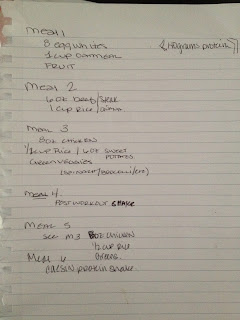 Meal 1
8 egg whites
1 cup oatmeal
Fruit
Meal 2
6 oz beef/steak
1 cup rice/
Meal 3
8oz chicken
1/2 cup rice / 6oz sweet potatoes
green veggies
(spinach/broccoli/etc)
Meal 4
Post workout shake
Meal 5
see M3 8oz chicken
1/2 cup rice
greens
Meal 6
casein protein shake